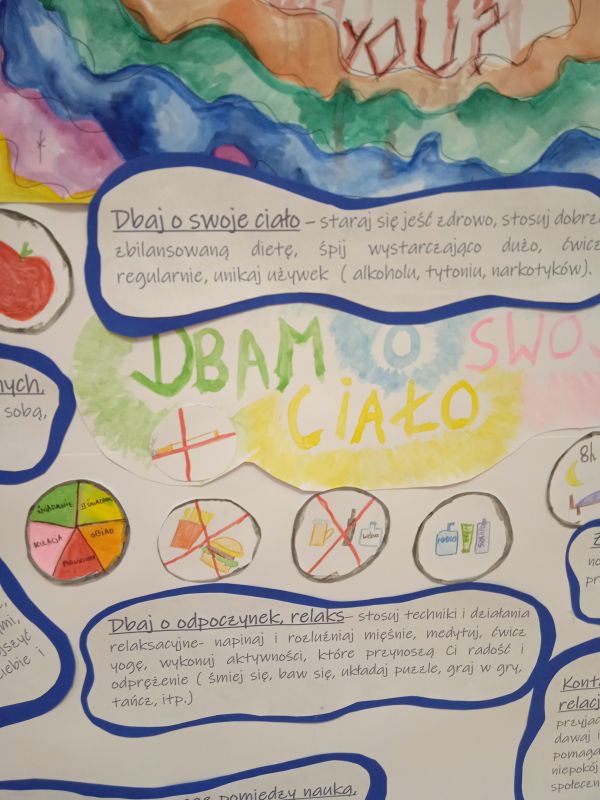 YOU?
Dbaj o swoje ciało – staraj się jeść zdrowo, stosuj dobrze
zbilansowaną dietę, śpij wystarczająco dużo, ćwicz
regularnie, unikaj używek ( alkoholu, tytoniu, narkotyków).
DBAM O SWOJ
CIAŁO
nych,
sobą,
ŚNIADANIE
II ŚNIADANIE
OBIAD
KOLACJA
8h
MYDŁO
Dbaj o odpoczynek, relaks– stosuj techniki i działania
relaksacyjne- napinaj i rozluźniaj mięśnie, medytuj, ćwicz
yogę, wykonuj aktywności, które przynoszą Ci radość i
odprężenie ( śmiej się, baw się, układaj puzzle, graj w gry,
tańcz, itp.)
ciebie i
Konta
relacj
przyjac
dawaj i
pomaga
niepokój
społeczn
pomiędzy nauką,